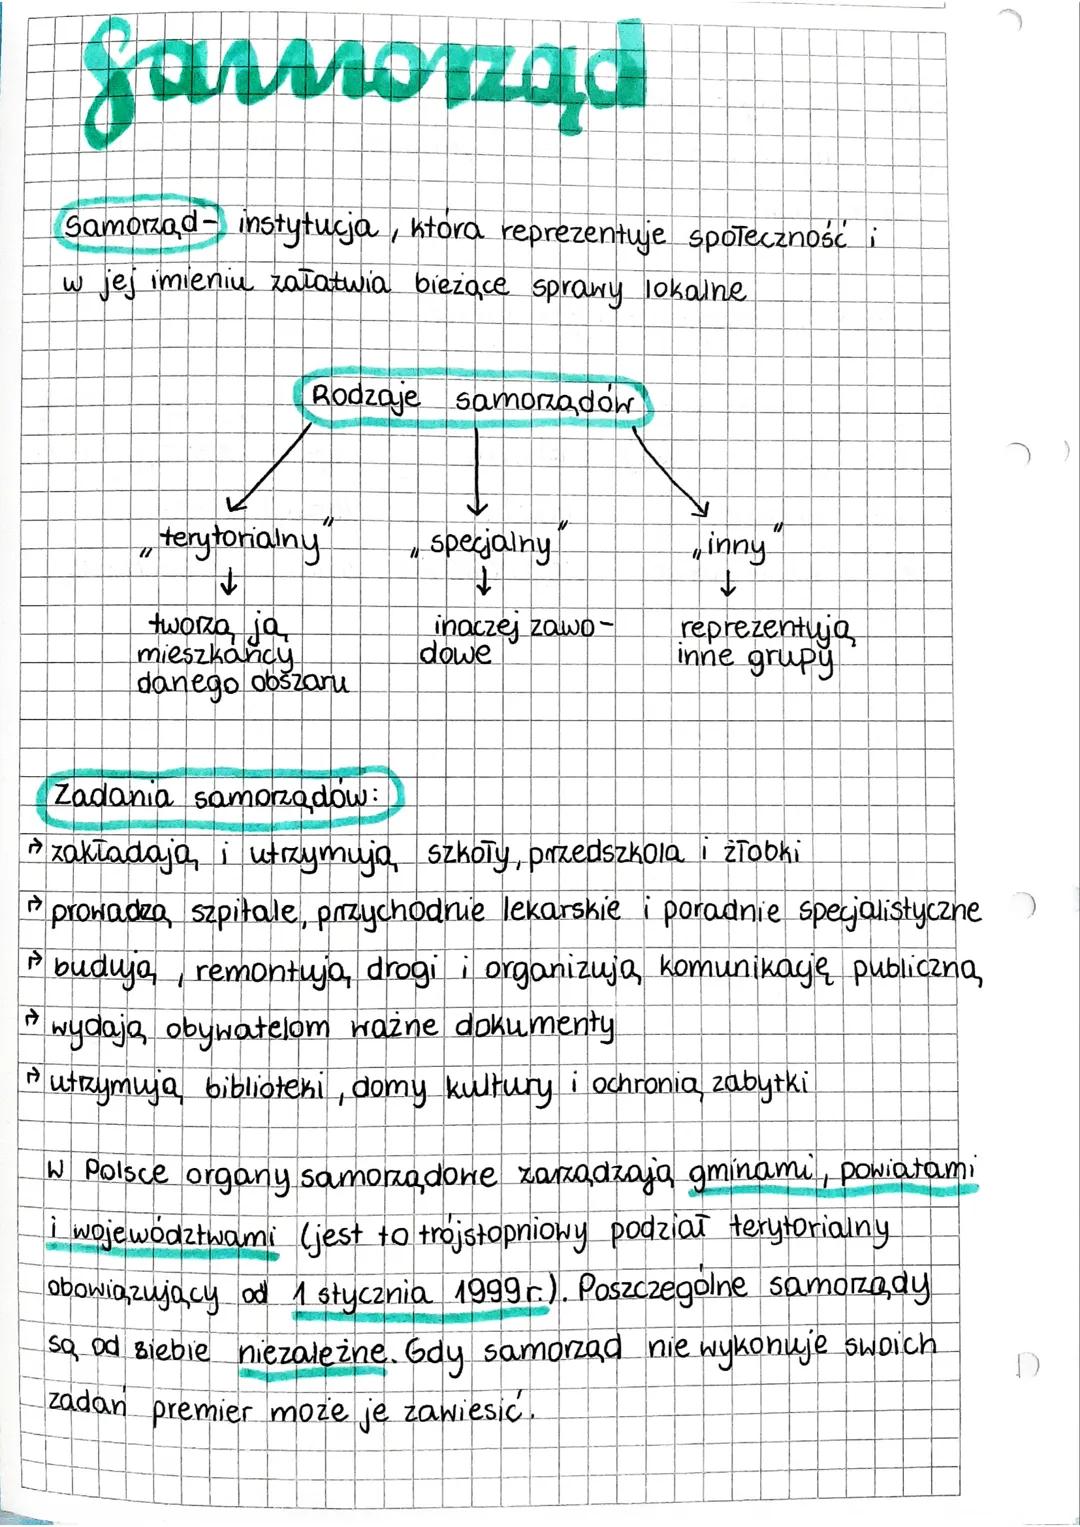 Samorząd
Samorząd- instytucja, która reprezentuje społeczność i
w jej imieniu załatwia bieżące sprawy lokalne
Rodzaje samorządów
„terytorialny" „specjalny" „inny"
↓ ↓ ↓
tworzą ją inaczej zawo- reprezentują
mieszkańcy dowe inne grupy
danego obszaru
Zadania samorządów:
→ zakładają i utrzymują szkoły, przedszkola i żłobki
→ prowadzą szpitale, przychodnie lekarskie i poradnie specjalistyczne
→ budują, remontują drogi i organizują komunikację publiczną
→ wydają obywatelom ważne dokumenty
→ utrzymują biblioteki, domy kultury i ochronią zabytki
W Polsce organy samorządowe zarządzają gminami, powiatami
i województwami (jest to trójstopniowy podział terytorialny
obowiązujący od 1 stycznia 1999r.). Poszczególne samorządy
są od siebie niezależne. Gdy samorząd nie wykonuje swoich
zadań premier może je zawiesić.